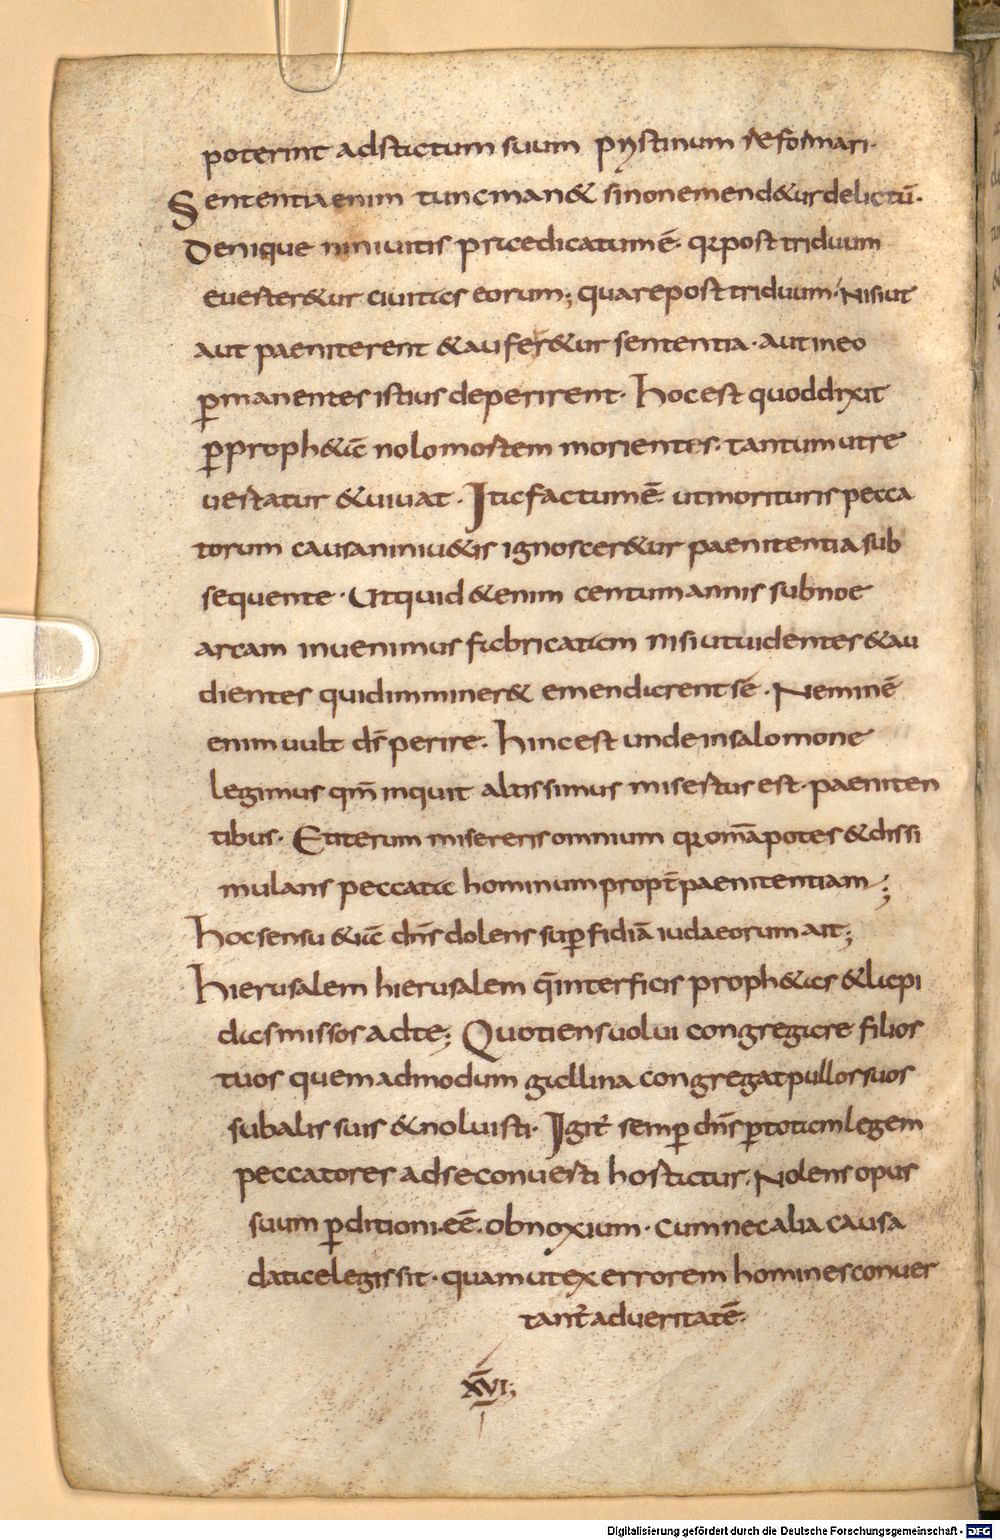 poterint ad statum suum pristinum reformari·
Sententia enim tunc man& si non emend&ur delictū·
Denique niniuitis praedicatum ē· qr post triduum
euerter&ur ciuitas eorum; quare post triduum· Nisi ut
aut paeniterent & aufer&ur sententia· aut in eo
ꝑmanentes istius deperirent· hoc est quod dixit
ꝑ proph&ā nolo mortem morientes· tantum utre
uertatur & uiuat· Ita factum ē· ut morituris pecca
torum causa niniu&is ignoscer&ur paenitentia sub
sequente· Ut quid & enim centum annis sub noe
arcam inuenimus fabricatam nisi ut uidentes & au
dientes quid imminer& emendarent sē· Neminē
enim uult ds̄ perire· hinc est unde in salomone
legimus qm̄ inquit altissimus misertus est· paeniten
tibus· Et iterum misereris omnium qr omā potes & dissi
mulans peccata hominum propt̄ paenitentiam;
hoc sensu &iā dns̄ dolens suꝑ fidiā iudaeorum ait;
hierusalem hierusalem q̄ interficis proph&as & lapi
das missos ad te; Quotiens uolui congregare filios
tuos quemadmodum gallina congregat pullos suos
sub alis suis & noluisti· Igit̄ semꝑ dns̄ ꝑ totam legem
peccatores ad se conuerti hortatur· Nolens opus
suum ꝑditioni·eē· obnoxium· cum nec alia causa
datae legis sit· quam ut ex errorem homines conuer
tant̄ ad ueritatē·
XVI;
Digitalisierung gefördert durch die Deutsche Forschungsgemeinschaft - DFG